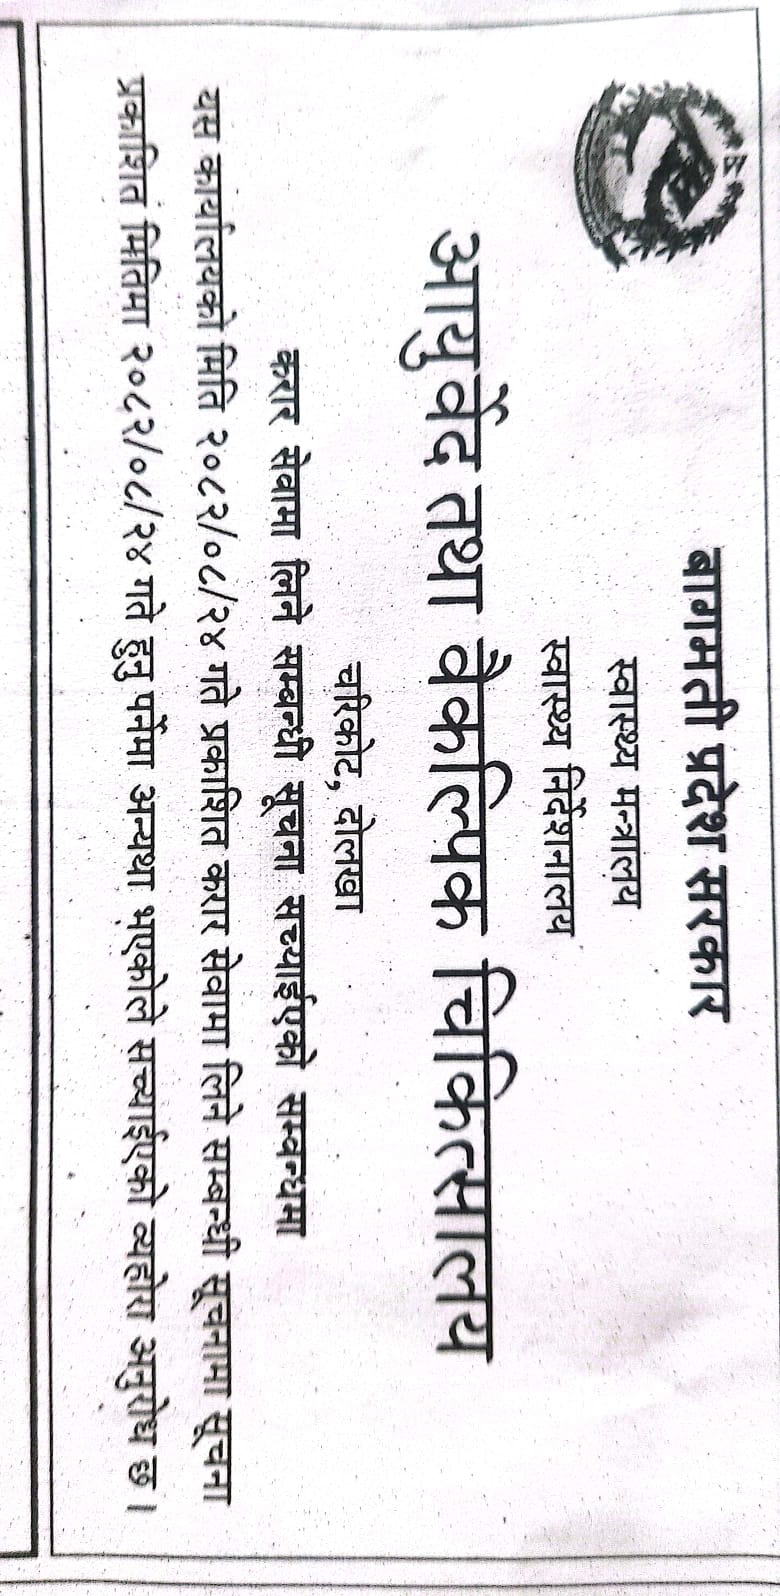 बागमती प्रदेश सरकार
स्वास्थ्य मन्त्रालय
स्वास्थ्य निर्देशनालय
आयुर्वेद तथा वैकल्पिक चिकित्सालय
चरिकोट, दोलखा
करार सेवामा लिने सम्बन्धी सूचना सच्याईएको सम्बन्धमा
यस कार्यालयको मिति २०८२/०८/२४ गते प्रकाशित करार सेवामा लिने सम्बन्धी सूचनामा सूचना
प्रकाशित मितिमा २०८२/०८/२४ गते हुनु पर्नेमा अन्यथा भएकोले सच्याईएको व्यहोरा अनुरोध छ।